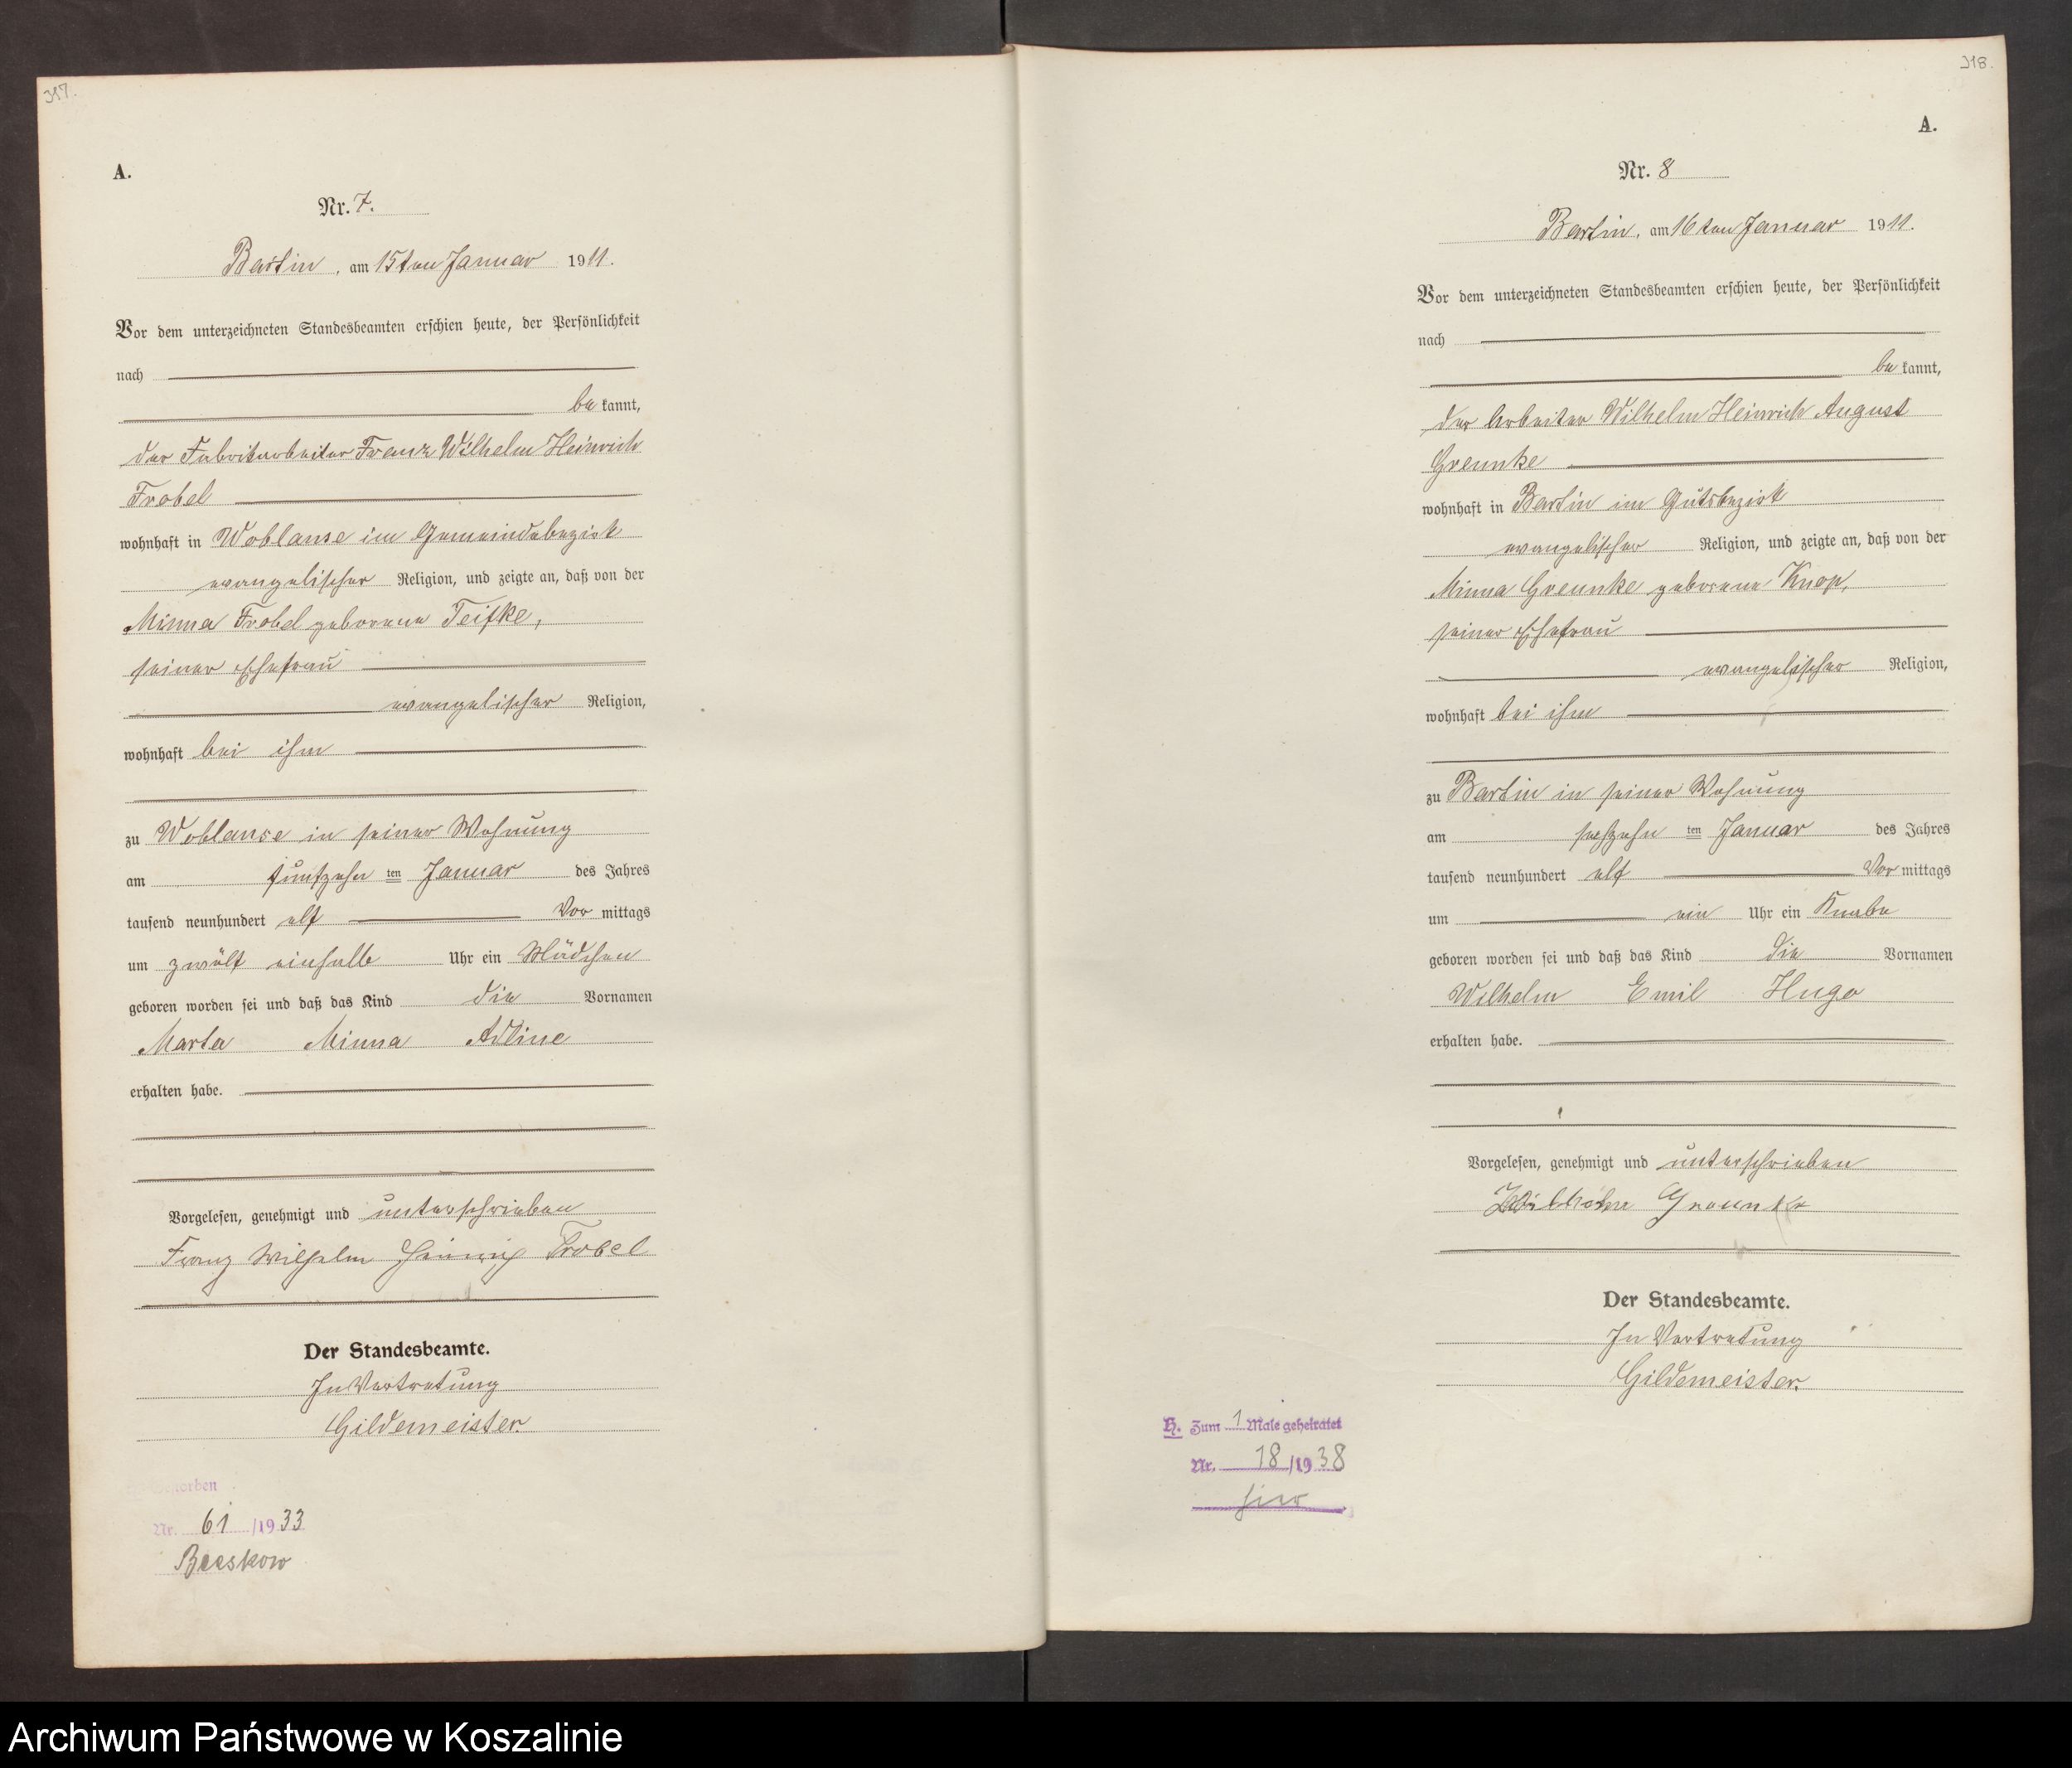 317.
A.
Nr. 7.
Bartin, am 15ten Januar 1911.
Vor dem unterzeichneten Standesbeamten erschien heute, der Persönlichkeit
nach
be kannt,
der Fabrikarbeiter Franz Wilhelm Heinrich
Frobel
wohnhaft in Woblanse im Gemeindebezirk
evangelischer Religion, und zeigte an, daß von der
Minna Frobel geborene Teifke,
seiner Ehefrau
evangelischer Religion,
wohnhaft bei ihm
zu Woblanse in seiner Wohnung
am fünfzehn ten Januar des Jahres
tausend neunhundert elf Vor mittags
um zwölf einhalb Uhr ein Mädchen
geboren worden sei und daß das Kind die Vornamen
Marta Minna Adline
erhalten habe.
Vorgelesen, genehmigt und unterschrieben
Franz Wilhelm Heinrich Frobel
Der Standesbeamte.
In Vertretung
Gildemeister.
Nr. 61 /1933
Beeskow
318.
A.
Nr. 8
Bartin, am 16ten Januar 1911.
Vor dem unterzeichneten Standesbeamten erschien heute, der Persönlichkeit
nach
be kannt,
der Arbeiter Wilhelm Heinrich August
Greunke
wohnhaft in Bartin im Gutsbezirk
evangelischer Religion, und zeigte an, daß von der
Minna Greunke geborene Knop,
seiner Ehefrau
evangelischer Religion,
wohnhaft bei ihm
zu Bartin in seiner Wohnung
am sechzehn ten Januar des Jahres
tausend neunhundert elf Vor mittags
um ein Uhr ein Knabe
geboren worden sei und daß das Kind die Vornamen
Wilhelm Emil Hugo
erhalten habe.
Vorgelesen, genehmigt und unterschrieben
Wilhelm Greunke
Der Standesbeamte.
In Vertretung
Gildemeister.
H. Zum 1 Male geheiratet
Nr. 18 /1938
hier
Archiwum Państwowe w Koszalinie